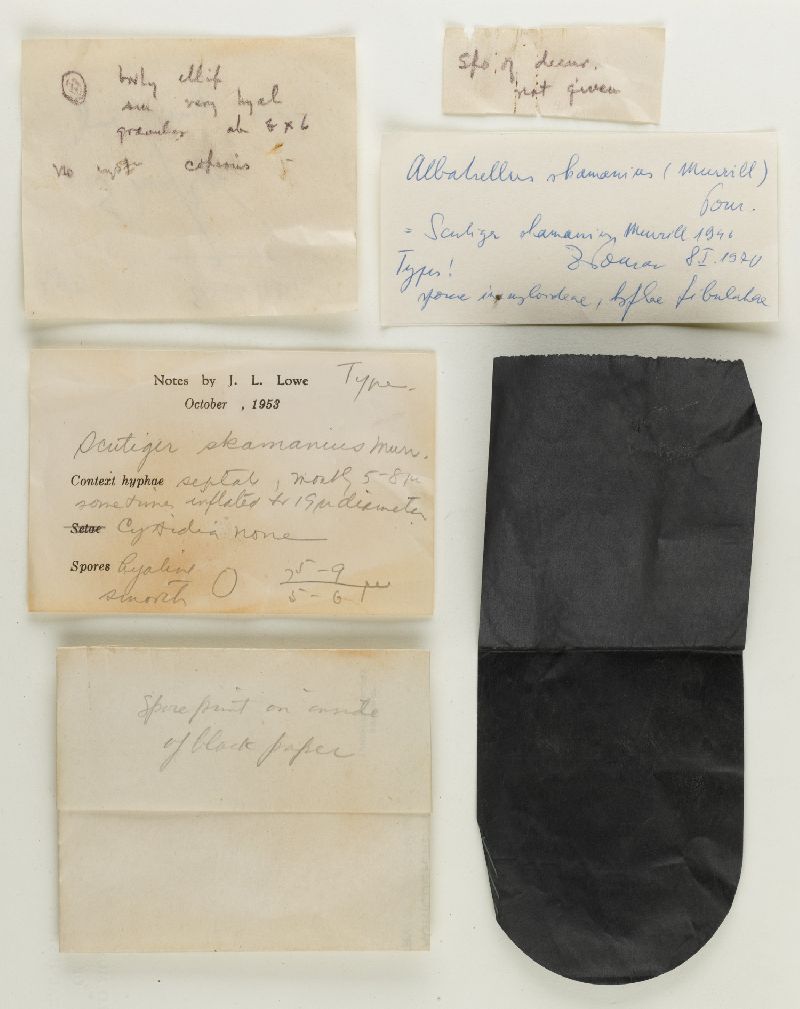 ellip
sm very hyal
granular ab 8 x 6
No
Spo of decur.
not given
Albatrellus skamanius (Murrill)
Pouz.
= Scutiger skamanius Murrill 1944
Z Pouzar 8 I. 1970
Typus!
sporae inamyloideae, hyphae fibulatae
Notes by J. L. Lowe Type.
October , 1953
Scutiger skamanius Murr.
Context hyphae septate, mostly 5-8µ
sometimes inflated to 19µ diameter
Setae Cystidia none
Spores hyaline 7.5-9
smooth 5-6 µ
Spore print on inside
of black paper